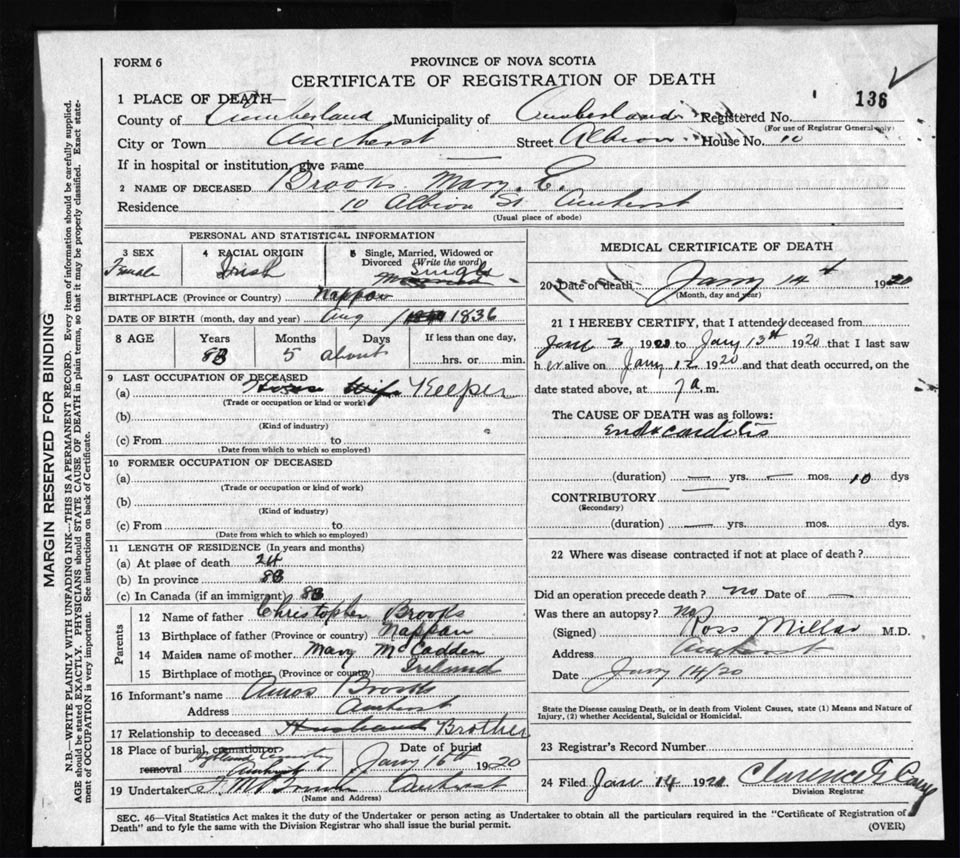 FORM 6
PROVINCE OF NOVA SCOTIA
CERTIFICATE OF REGISTRATION OF DEATH
136
1 PLACE OF DEATH—
County of Cumberland Municipality of Cumberland Registered No.
(For use of Registrar General only)
City or Town Amherst Street Albion House No. 10
If in hospital or institution, give name —
2 NAME OF DECEASED Brooks Mary E.
Residence 10 Albion St Amherst
(Usual place of abode)
PERSONAL AND STATISTICAL INFORMATION
3 SEX Female
4 RACIAL ORIGIN Irish
5 Single, Married, Widowed or Divorced (Write the word) Single
BIRTHPLACE (Province or Country) Nappan
DATE OF BIRTH (month, day and year) Aug 1836
8 AGE Years 83 Months 5 Days about If less than one day, hrs. or min.
9 LAST OCCUPATION OF DECEASED
(a) House Wife Keeper
(Trade or occupation or kind or work)
(b)
(Kind of industry)
(c) From to
(Date from which to which so employed)
10 FORMER OCCUPATION OF DECEASED
(a)
(Trade or occupation or kind of work)
(b)
(Kind of industry)
(c) From to
(Date from which to which so employed)
11 LENGTH OF RESIDENCE (In years and months)
(a) At plase of death 24
(b) In province 83
(c) In Canada (if an immigrant) 83
Parents
12 Name of father Christopher Brooks
13 Birthplace of father (Province or country) Nappan
14 Maiden name of mother Mary McCadden
15 Birthplace of mother (Province or country) Ireland
16 Informant's name Amos Brooks
Address Amherst
17 Relationship to deceased Husband Brother
18 Place of burial, cremation or removal Highland Cemetery Amherst Date of burial Jany 16th 1920
19 Undertaker Amherst
(Name and Address)
MEDICAL CERTIFICATE OF DEATH
20 Date of death Jany 14th 1920
(Month, day and year)
21 I HEREBY CERTIFY, that I attended deceased from
Jan 3 1920 to Jany 13th 1920 that I last saw
her alive on Jany 12 1920 and that death occurred, on the
date stated above, at 7 a.m.
The CAUSE OF DEATH was as follows:
Endocarditis
(duration) — yrs. — mos. 10 dys
CONTRIBUTORY —
(Secondary)
(duration) — yrs. mos. dys.
22 Where was disease contracted if not at place of death?
Did an operation precede death? no Date of —
Was there an autopsy? no
(Signed) Ross Millar M.D.
Address Amherst
Date Jany 14/20
State the Disease causing Death, or in death from Violent Causes, state (1) Means and Nature of
Injury, (2) whether Accidental, Suicidal or Homicidal.
23 Registrar's Record Number
24 Filed Jan 14 1920 Clarence E Casey
Division Registrar
SEC. 46—Vital Statistics Act makes it the duty of the Undertaker or person acting as Undertaker to obtain all the particulars required in the "Certificate of Registration of
Death" and to fyle the same with the Division Registrar who shall issue the burial permit.
(OVER)
MARGIN RESERVED FOR BINDING
N.B.—WRITE PLAINLY WITH UNFADING INK—THIS IS A PERMANENT RECORD. Every item of information should be carefully supplied.
AGE should be stated EXACTLY. PHYSICIANS should STATE CAUSE OF DEATH in plain terms, so that it may be properly classified. Exact state-
ment of OCCUPATION is very important. See instructions on back of Certificate.